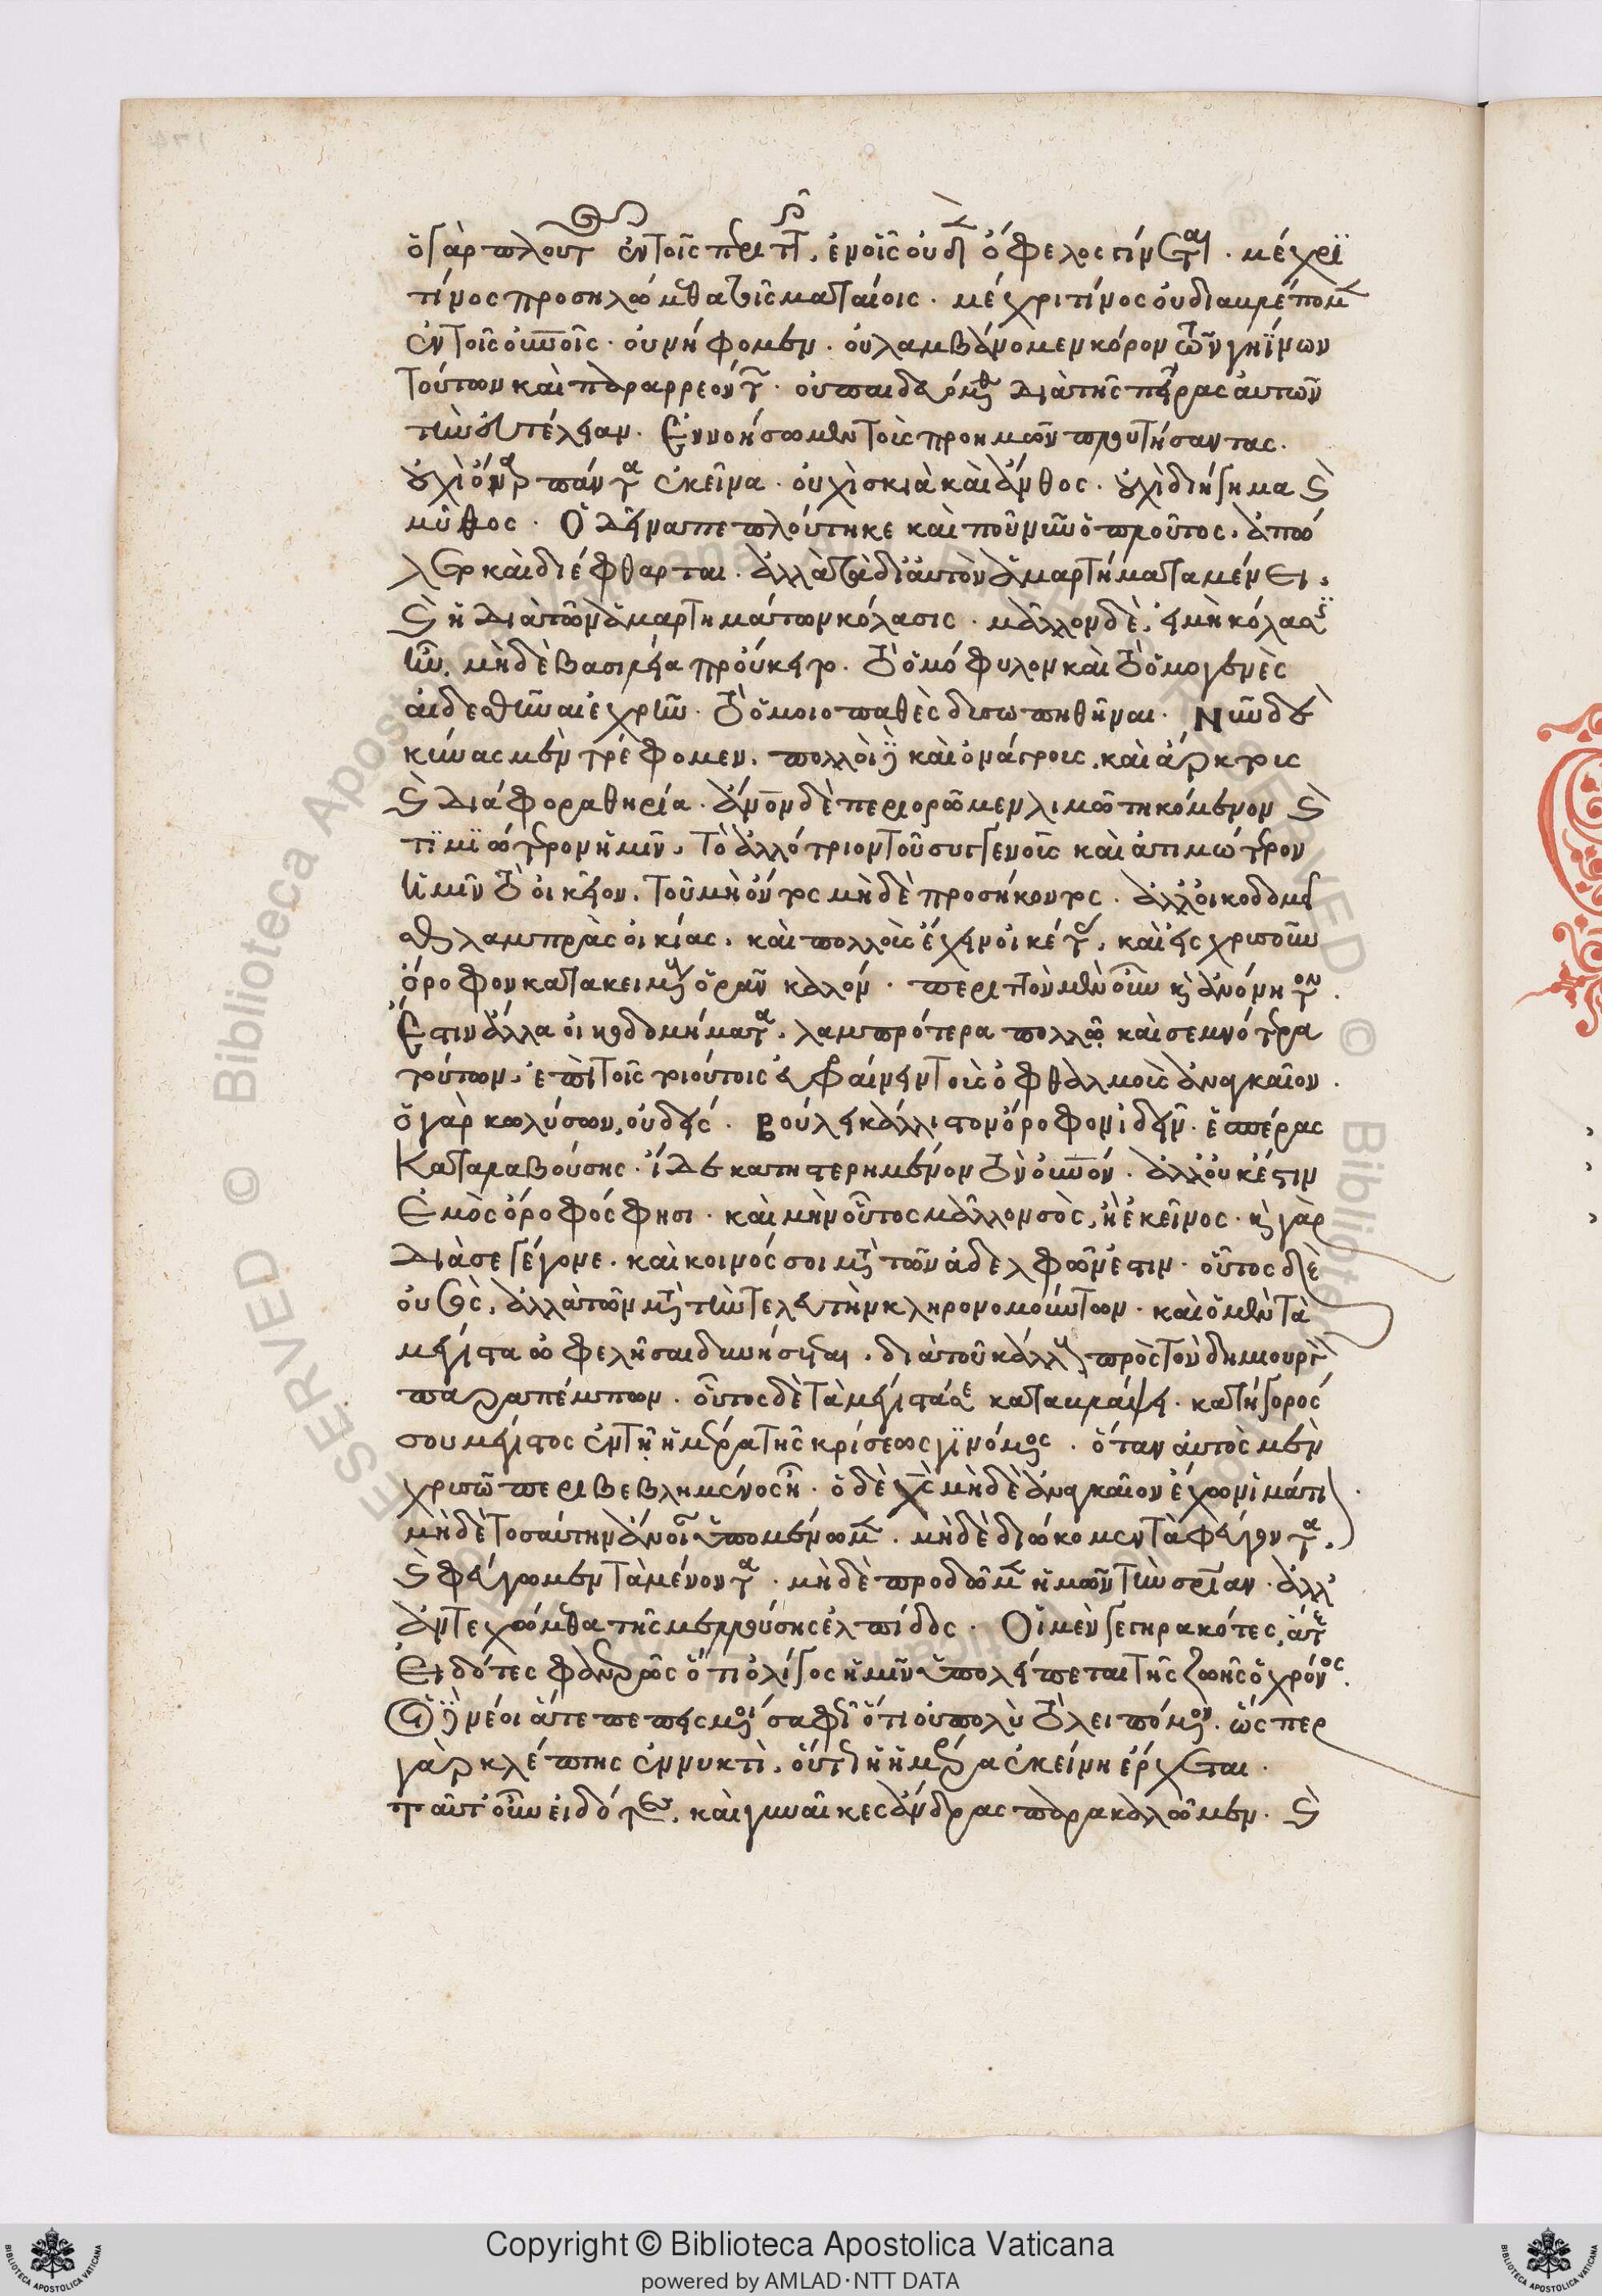 ὁ γὰρ πλουτῶν ἐν τοῖς περιττοῖς, ἐν οἷς οὐδὲν ὄφελος γίνεται. μέχρι
τίνος προσηλώμεθα τοῖς ματαίοις. μέχρι τίνος οὐ διαπρέπομεν
ἐν τοῖς οὐρανοῖς. οὐ νήφομεν. οὐ λαμβάνομεν κόρον τῶν γηΐνων
τούτων καὶ παραρρεόντων. οὐ παιδευόμεθα διὰ τῆς πείρας αὐτῶν
τὴν εὐτέλειαν. Ἐννοήσωμεν τοὺς πρὸ ἡμῶν πλουτήσαντας.
οὐχὶ ὄναρ πάντα ἐκεῖνα. οὐχὶ σκιὰ καὶ ἄνθος. οὐχὶ διήγημα καὶ
μῦθος. Ὁ δεῖνα πεπλούτηκε καὶ ποῦ νῦν ὁ πλοῦτος. ἀπό
λετο καὶ διέφθαρται. ἀλλὰ τὰ δι αὐτὸν ἁμαρτήματα μένει.
καὶ ἡ διὰ τῶν ἁμαρτημάτων κόλασις. μᾶλλον δὲ, εἰ μὴ κόλασις
ἦν, μὴ δὲ βασιλεία προὔκειτο. τὸ ὁμόφυλον καὶ τὸ ὁμογενὲς
αἰδεσθῆναι ἐχρῆν. τὸ ὁμοιοπαθὲς δυσωπηθῆναι. Νῦν δὲ
κύνας μὲν τρέφομεν, πολλοὶ δὲ καὶ ὀνάγρους, καὶ ἄρκτους
καὶ διάφορα θηρία. ἄνον δὲ περιορῶμεν λιμῶ τηκόμενον καὶ
τιμιώτερον ἡμῖν, τὸ ἀλλότριον τοῦ συγγενοῦς καὶ ἀτιμώτερον
ἡμῖν τὸ οἰκεῖον, τοῦ μὴ ὄντος μὴ δὲ προσήκοντος. ἀλλ οἰκοδομεῖ
σθαι λαμπρὰς οἰκίας, καὶ πολλοὺς ἔχειν οἰκέτας, καὶ εἰς χρυσοῦν
ὄροφον κατακείμενον ὁρᾶν καλόν. περιττὸν μὲν οὖν καὶ ἀνόνητον.
Ἔστιν ἄλλα οἰκοδομήματα, λαμπρότερα πολλῶ καὶ σεμνότερα
τούτων, ἐπὶ τοῖς τοιούτοις εὐφραίνειν τοὺς ὀφθαλμοὺς ἀναγκαῖον.
ὁ γὰρ κωλύσων, οὐδείς. Βούλει κάλλιστον ὄροφον ἰδεῖν. ἑσπέρας
Καταλαβούσης. ἴδε κατηστερημένον τὸν οὐνον. ἀλλ οὐκ ἔστιν
Ἐμὸς ὄροφός φησι. καὶ μὴν οὗτος μᾶλλον σὸς, ἢ ἐκεῖνος. καὶ γὰρ
Διὰ σὲ γέγονε. καὶ κοινός σοι μετὰ τῶν ἀδελφῶν ἐστιν. οὗτος δὲ
οὐ σὸς, ἀλλὰ τῶν μετὰ τὴν τελευτήν κληρονομούντων. καὶ ὁ μὲν τὰ
μέγιστα ὠφελῆσαι δυνήσεται, διὰ τοῦ κάλλους πρὸς τὸν δημιουργὸν
παραπέμπων. οὗτος δὲ τὰ μέγιστά σε καταβλάψει. κατήγορός
σου μέγιστος ἐν τῆ ἡμέρα τῆς κρίσεως γινόμενος. ὅταν αὐτὸς μὲν
χρυσῶ περιβεβλημένος ἦ. ὁ δὲ χς μὴ δὲ ἀναγκαῖον ἔχων ἱμάτιον.
μὴ δὲ τοσαύτην ἄνοιαν ὑπομένωμεν. μὴ δὲ διώκομεν τὰ φεύγοντα,
καὶ φεύγωμεν τὰ μένοντα. μὴ δὲ προδῶμεν ἡμῶν τὴν σρίαν. ἀλλ
ἀντεχώμεθα τῆς μελλούσης ἐλπίδος. Οἱ μὲν γεγηρακότες, ἅτε
Εἰδότες φανερῶς ὅτι ὀλίγος ἡμῖν ὑπολείπεται τῆς ζωῆς ὁ χρόνος.
Οἱ δὲ νέοι ἅτε πεπεισμένοι σαφῶς ὅτι οὐ πολὺ τὸ λειπόμενον. ὥσπερ
γὰρ κλέπτης ἐν νυκτὶ, οὕτως ἡ ἡμέρα ἐκείνη ἔρχεται.
ταῦτ οὖν εἰδότες, καὶ γυναῖκες ἄνδρας παρακαλῶμεν. καὶ
Copyright © Biblioteca Apostolica Vaticana
powered by AMLAD·NTT DATA